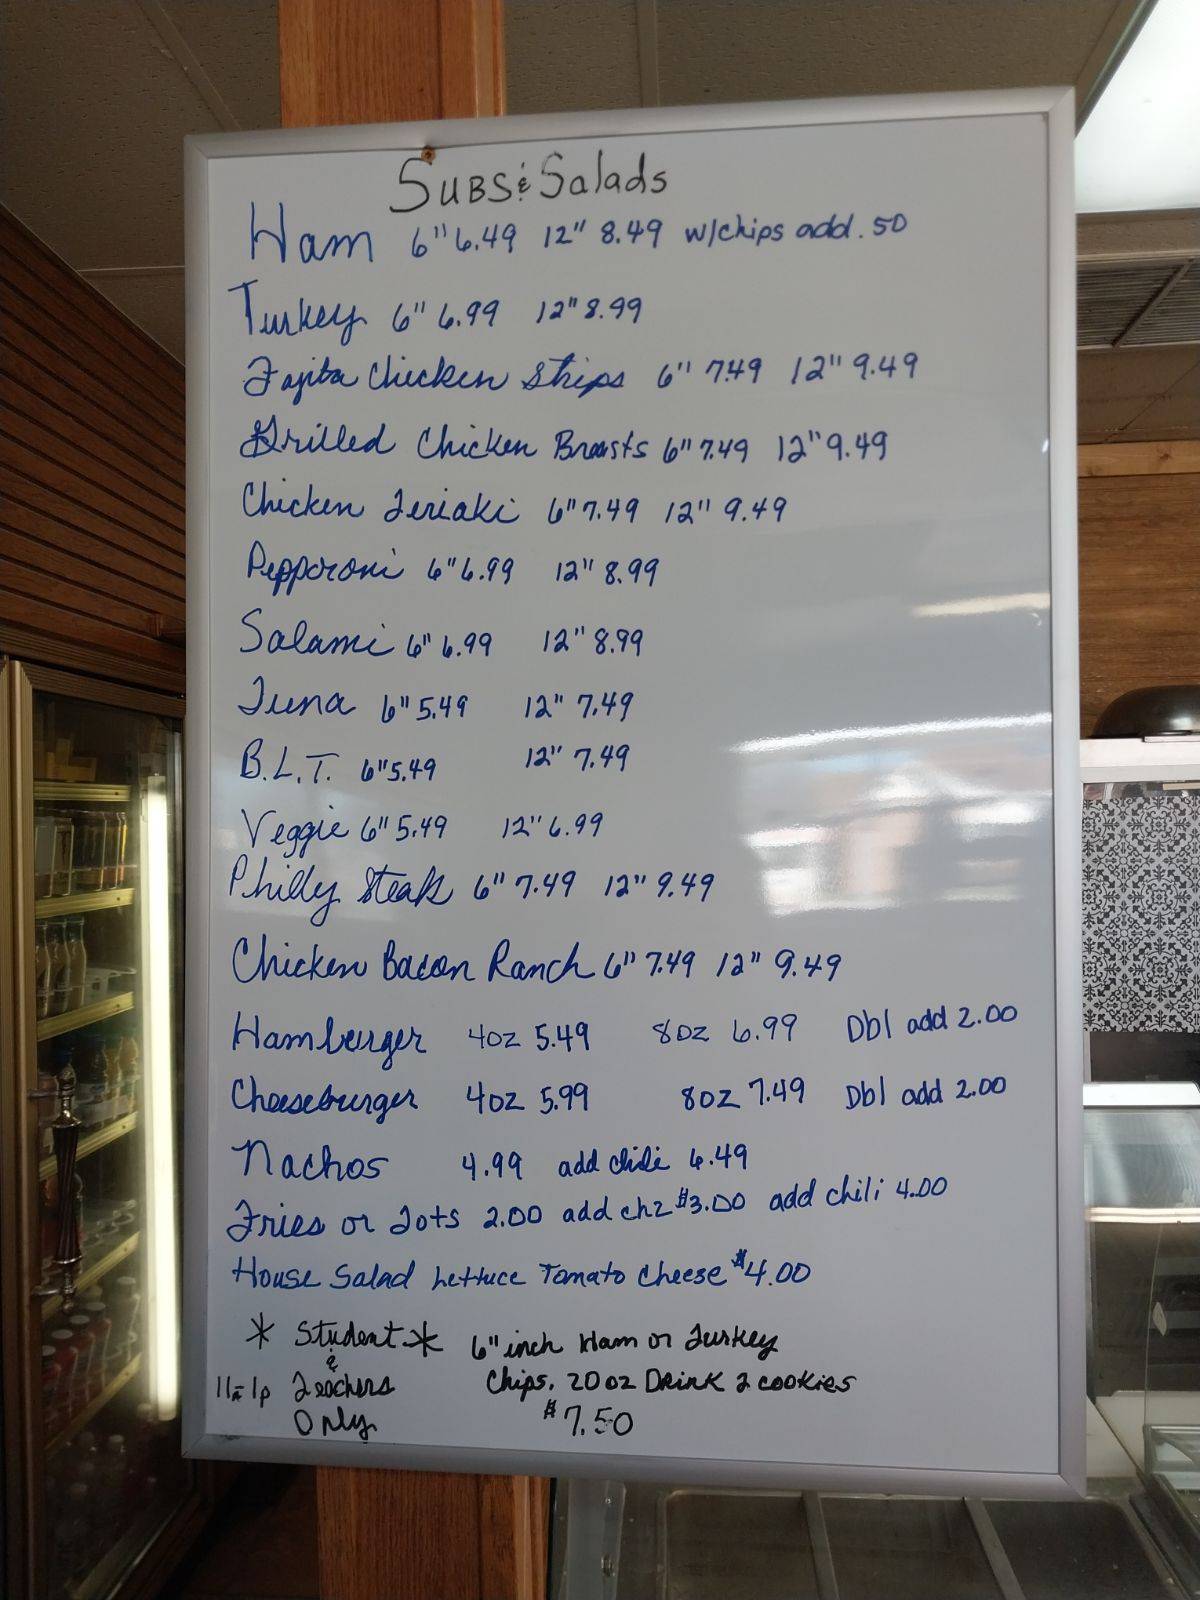 Subs & Salads
Ham 6" 6.49 12" 8.49 w/chips add .50
Turkey 6" 6.99 12" 8.99
Fajita Chicken Strips 6" 7.49 12" 9.49
Grilled Chicken Breasts 6" 7.49 12" 9.49
Chicken Teriaki 6" 7.49 12" 9.49
Pepperoni 6" 6.99 12" 8.99
Salami 6" 6.99 12" 8.99
Tuna 6" 5.49 12" 7.49
B.L.T. 6" 5.49 12" 7.49
Veggie 6" 5.49 12" 6.99
Philly Steak 6" 7.49 12" 9.49
Chicken Bacon Ranch 6" 7.49 12" 9.49
Hamburger 4oz 5.49 8oz 6.99 Dbl add 2.00
Cheeseburger 4oz 5.99 8oz 7.49 Dbl add 2.00
Nachos 4.99 add chili 6.49
Fries or Tots 2.00 add chz $3.00 add chili 4.00
House Salad Lettuce Tomato Cheese $4.00
* Student * 6" inch Ham or Turkey
&
11a-1p Teachers Chips, 20 oz Drink 2 cookies
Only $7.50